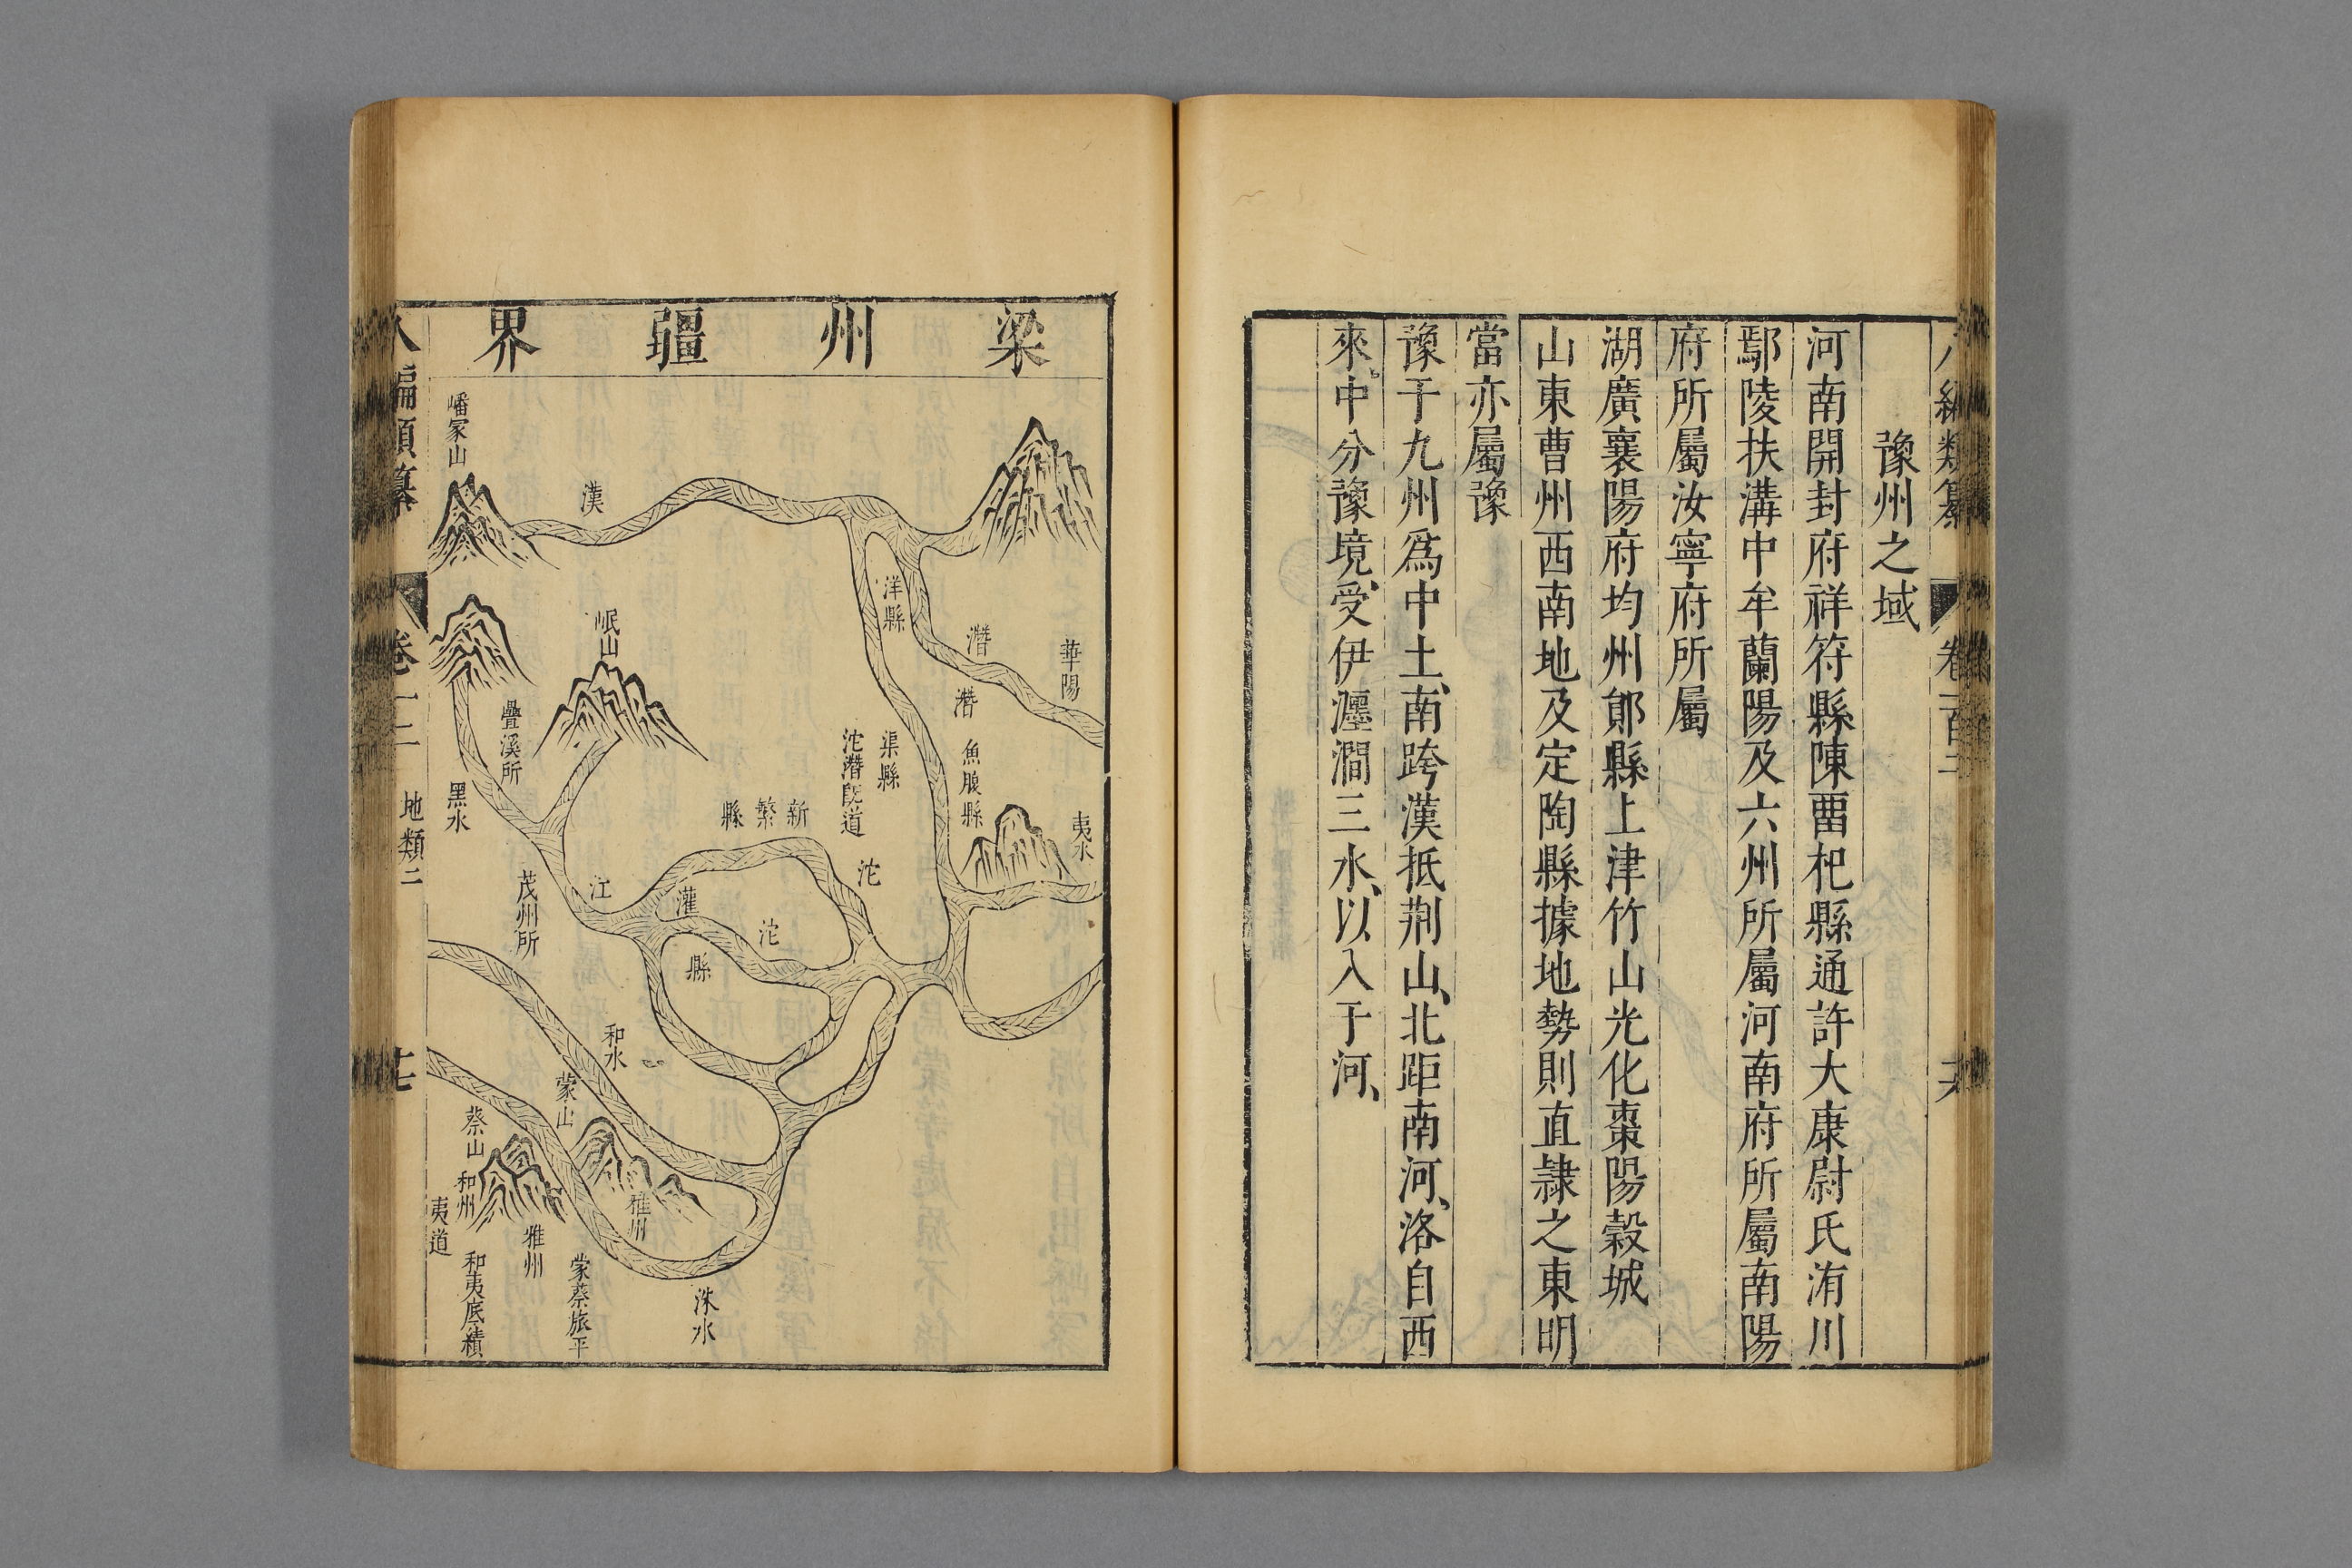 豫州之域
河南開封府祥符縣陳畱杞縣通許大康尉氏洧川
鄢陵扶溝中牟蘭陽及六州所屬河南府所屬南陽
府所屬汝寧府所屬
湖廣襄陽府均州鄖縣上津竹山光化棗陽榖城
山東曹州西南地及定陶縣據地勢則直隷之東明
當亦屬豫
豫于九州爲中土、南跨漢抵荆山、北距南河、洛自西
來、中分豫境、受伊瀍澗三水、以入于河、
梁州疆界
華陽
夷水
潛
潛
魚腹縣
洋縣
渠縣
沱潛旣道
沱
新繁縣
沱
灌縣
江
漢
嶓冢山
岷山
疊溪所
黑水
茂州所
和水
蒙山
雅州
洙水
蒙蔡旅平
雅州
蔡山
和州
和夷底績
夷道
地類二